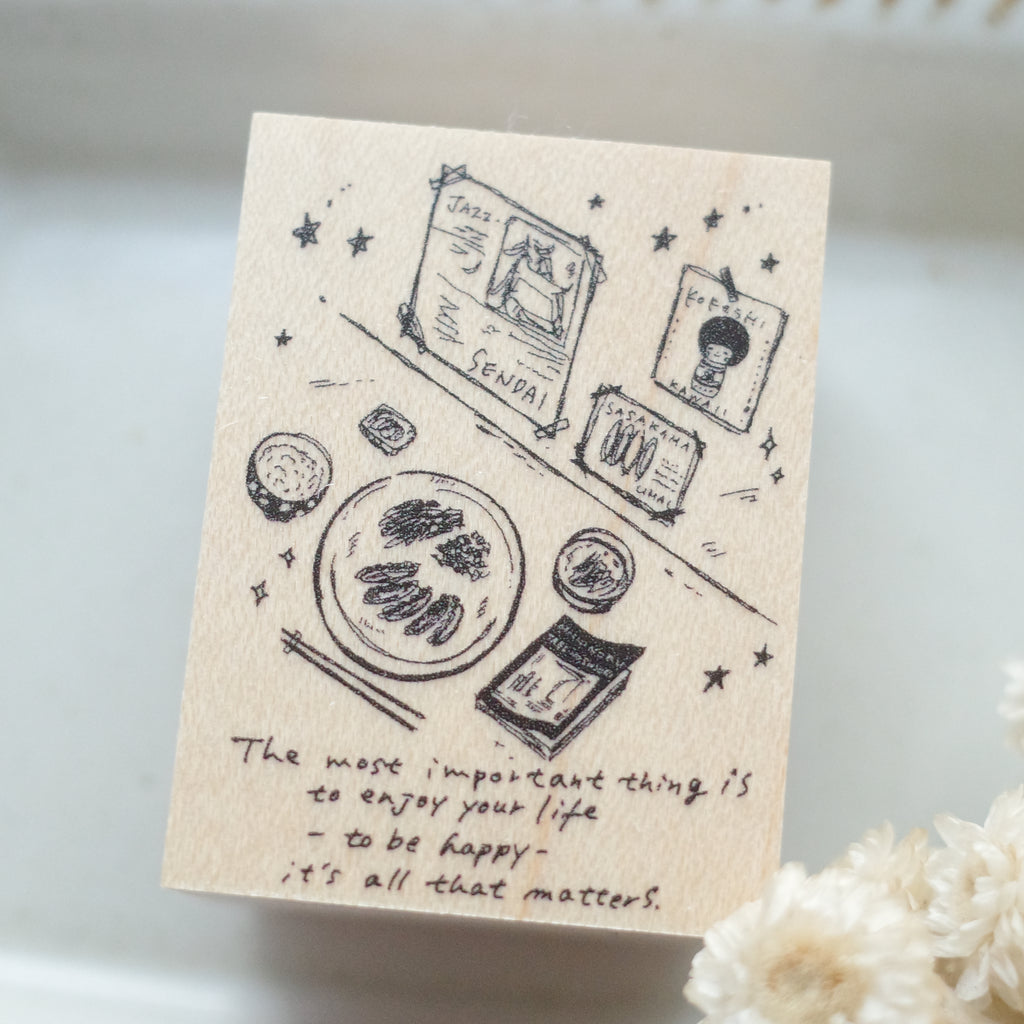 JAZZ.
SENDAI
KOKESHI
KAWAII
SASAKAMA
UMAI
The most important thing is
to enjoy your life
- to be happy-
it's all that matters.